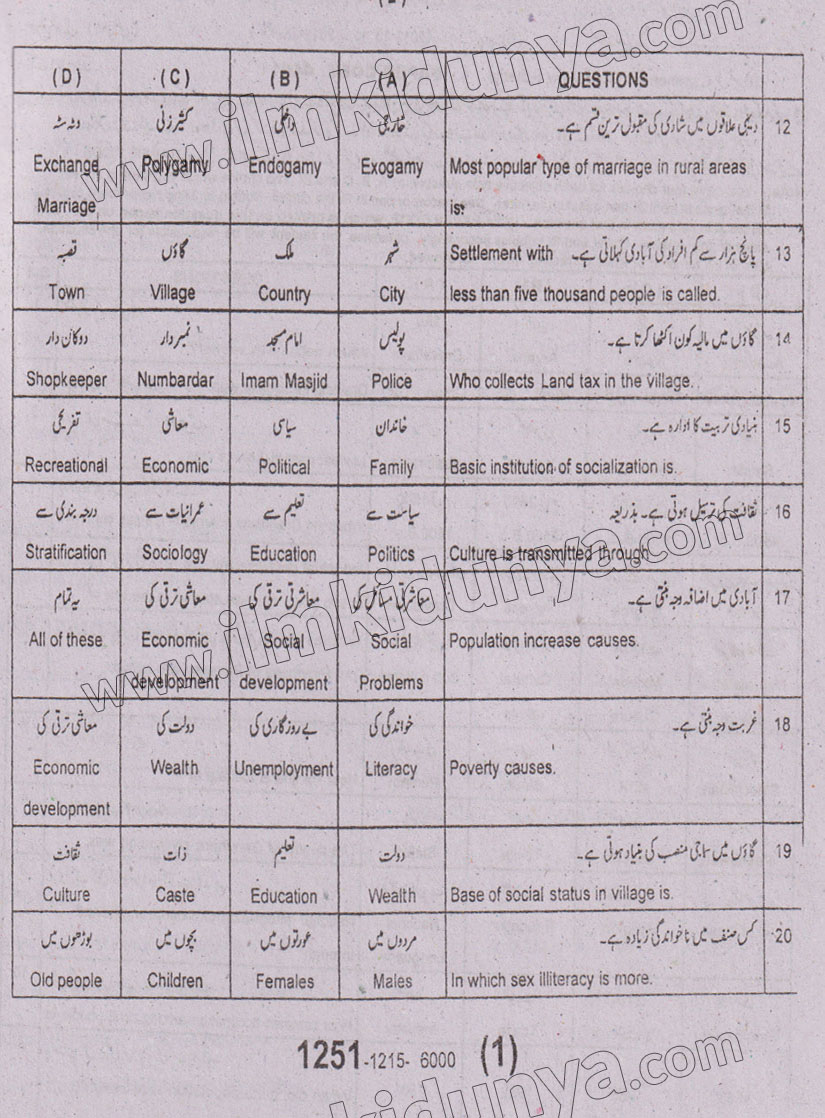 (D) (C) (B) (A) QUESTIONS
وٹہ سٹہ کثیر زنی داخلی خارجی دیہی علاقوں میں شادی کی مقبول ترین قسم ہے۔ 12
Exchange Polygamy Endogamy Exogamy Most popular type of marriage in rural areas
Marriage is:
قصبہ گاؤں ملک شہر Settlement with پانچ ہزار سے کم افراد کی آبادی کہلاتی ہے۔ 13
Town Village Country City less than five thousand people is called.
دوکان دار نمبردار امام مسجد پولیس گاؤں میں مالیہ کون اکٹھا کرتا ہے۔ 14
Shopkeeper Numbardar Imam Masjid Police Who collects Land tax in the village.
تفریحی معاشی سیاسی خاندان بنیادی تربیت کا ادارہ ہے۔ 15
Recreational Economic Political Family Basic institution of socialization is.
درجہ بندی سے عمرانیات سے تعلیم سے سیاست سے ثقافت کی ترسیل ہوتی ہے۔ بذریعہ 16
Stratification Sociology Education Politics Culture is transmitted through
یہ تمام معاشی ترقی کی معاشرتی ترقی کی معاشرتی مسائل کی آبادی میں اضافہ وجہ بنتی ہے۔ 17
All of these Economic Social Social Population increase causes.
development development Problems
معاشی ترقی کی دولت کی بے روزگاری کی خواندگی کی غربت وجہ بنتی ہے۔ 18
Economic Wealth Unemployment Literacy Poverty causes.
development
ثقافت ذات تعلیم دولت گاؤں میں سماجی منصب کی بنیاد ہوتی ہے۔ 19
Culture Caste Education Wealth Base of social status in village is.
بوڑھوں میں بچوں میں عورتوں میں مردوں میں کس صنف میں ناخواندگی زیادہ ہے۔ 20
Old people Children Females Males In which sex illiteracy is more.
1251-1215- 6000 (1)
www.ilmkidunya.com
www.ilmkidunya.com
kidunya.com